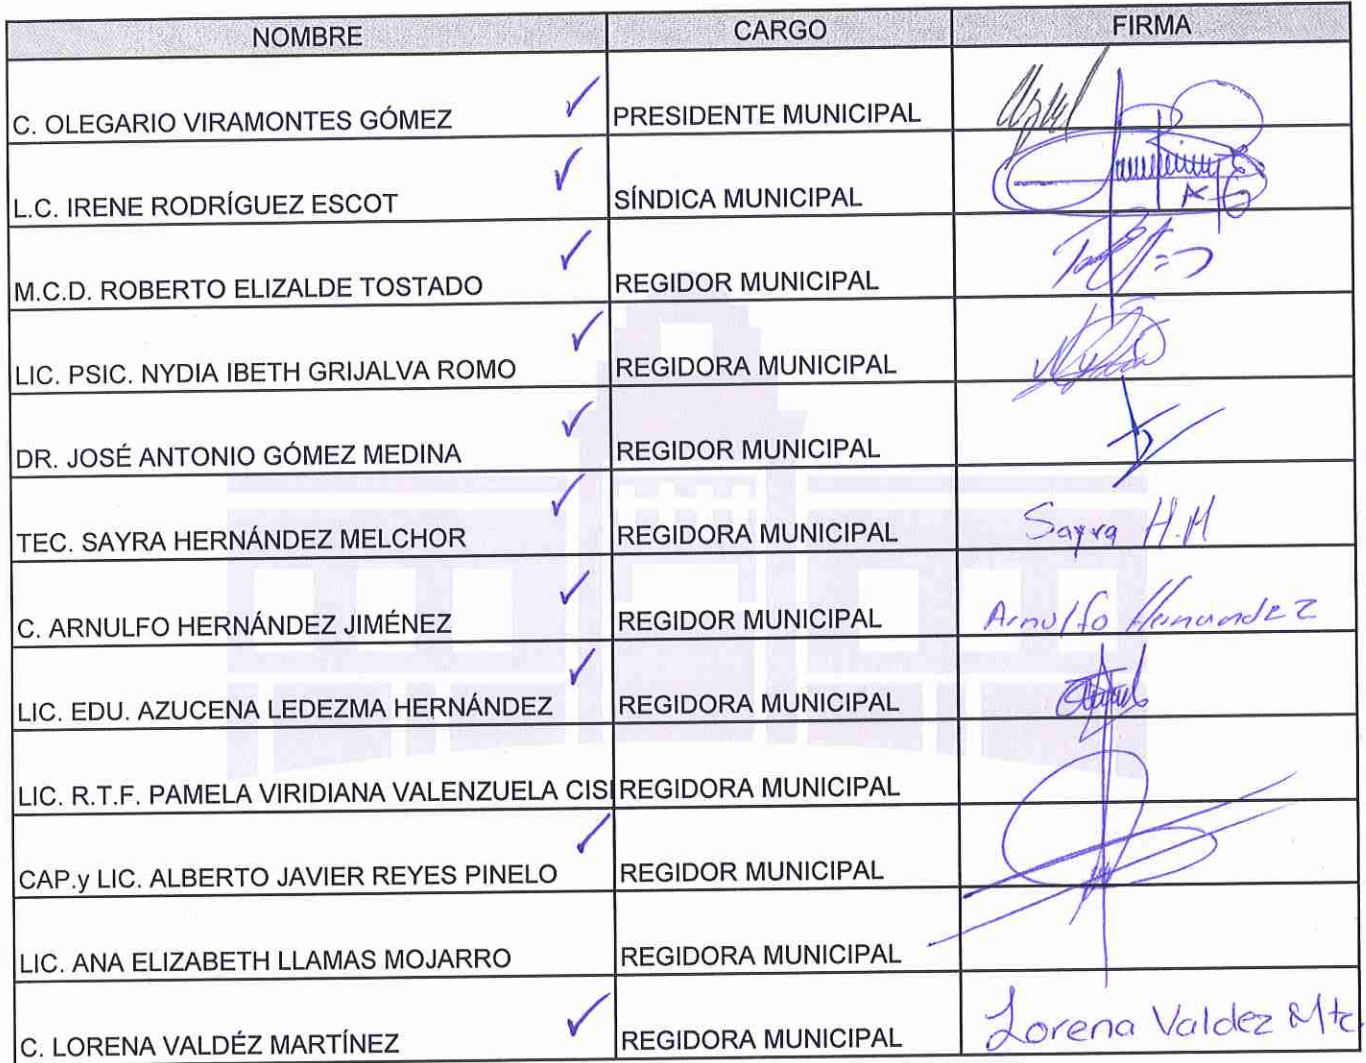 NOMBRE CARGO FIRMA
C. OLEGARIO VIRAMONTES GÓMEZ PRESIDENTE MUNICIPAL
L.C. IRENE RODRÍGUEZ ESCOT SÍNDICA MUNICIPAL
M.C.D. ROBERTO ELIZALDE TOSTADO REGIDOR MUNICIPAL
LIC. PSIC. NYDIA IBETH GRIJALVA ROMO REGIDORA MUNICIPAL
DR. JOSÉ ANTONIO GÓMEZ MEDINA REGIDOR MUNICIPAL
TEC. SAYRA HERNÁNDEZ MELCHOR REGIDORA MUNICIPAL Sayra H.M
C. ARNULFO HERNÁNDEZ JIMÉNEZ REGIDOR MUNICIPAL Arnulfo Hernandez
LIC. EDU. AZUCENA LEDEZMA HERNÁNDEZ REGIDORA MUNICIPAL
LIC. R.T.F. PAMELA VIRIDIANA VALENZUELA CIS REGIDORA MUNICIPAL
CAP.y LIC. ALBERTO JAVIER REYES PINELO REGIDOR MUNICIPAL
LIC. ANA ELIZABETH LLAMAS MOJARRO REGIDORA MUNICIPAL
C. LORENA VALDÉZ MARTÍNEZ REGIDORA MUNICIPAL Lorena Valdez Mtz.